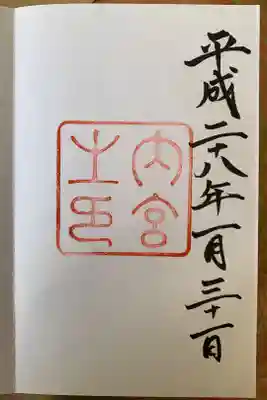 平成二十八年一月三十一日
内宮
之印